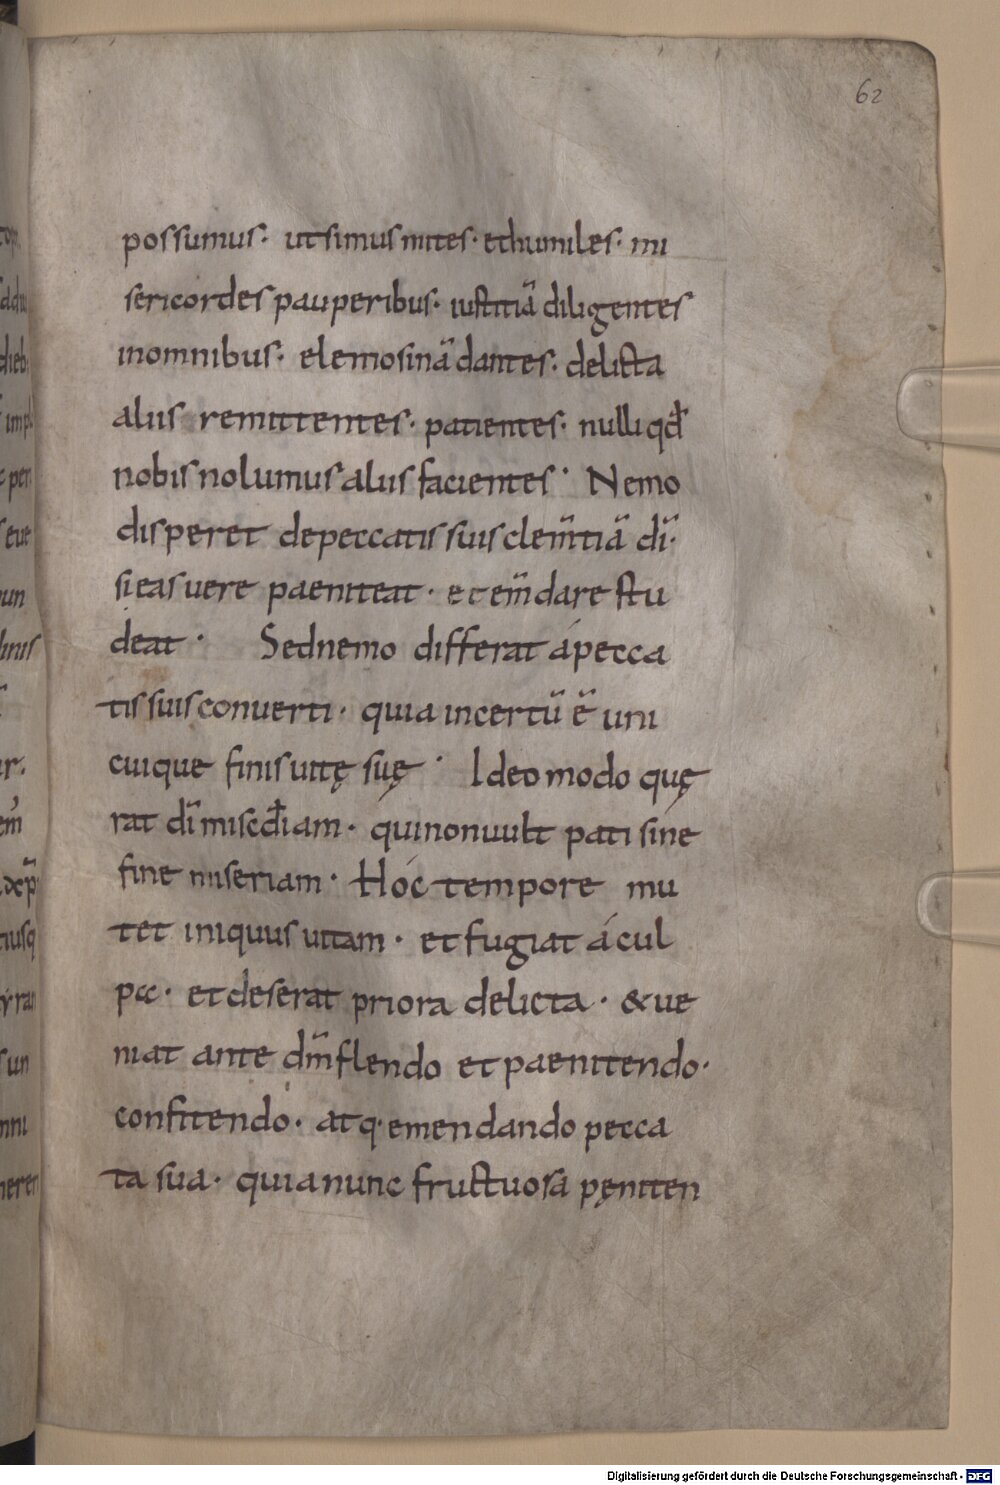 62
possumus· ut simus mites· et humiles· mi
sericordes pauperibus· iustitiā diligentes
in omnibus· elemosinā dantes· delicta
aliis remittentes· patientes· nulli qđ
nobis nolumus aliis facientes· Nemo
disperet de peccatis suis clem̄tiā dī·
si eas vere paeniteat· et em̄dare stu
deat· Sed nemo differat á pecca
tis suis converti· quia incertū ē uni
cuique finis uitę suę· Ideo modo quę
rat dī misc̄điam· qui non uult pati sine
fine miseriam· Hóc tempore mu
tet iniquus uitam· et fugiat á cul
pa· et deserat priora delicta· & ue
niat ante dm̄ flendo et paenitendo·
confitendo· atq· emendando pecca
ta sua· quia nunc fructuosa pęniten
Digitalisierung gefördert durch die Deutsche Forschungsgemeinschaft - DFG